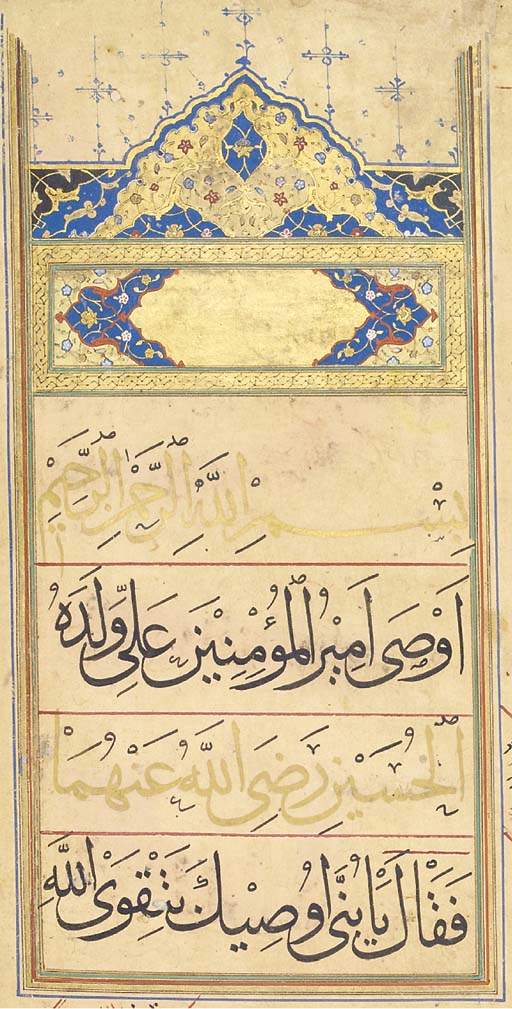 بِسْمِ اللَّهِ الرَّحْمٰنِ الرَّحِيْمِ
اَوْصَى اَمِيْرُ الْمُؤْمِنِيْنَ عَلِىٌّ وَلَدَهُ
الْحُسَيْنَ رَضِىَ اللَّهُ عَنْهُمَا
فَقَالَ يَا بُنَىَّ اُوصِيْكَ بِتَقْوَى اللَّهِ